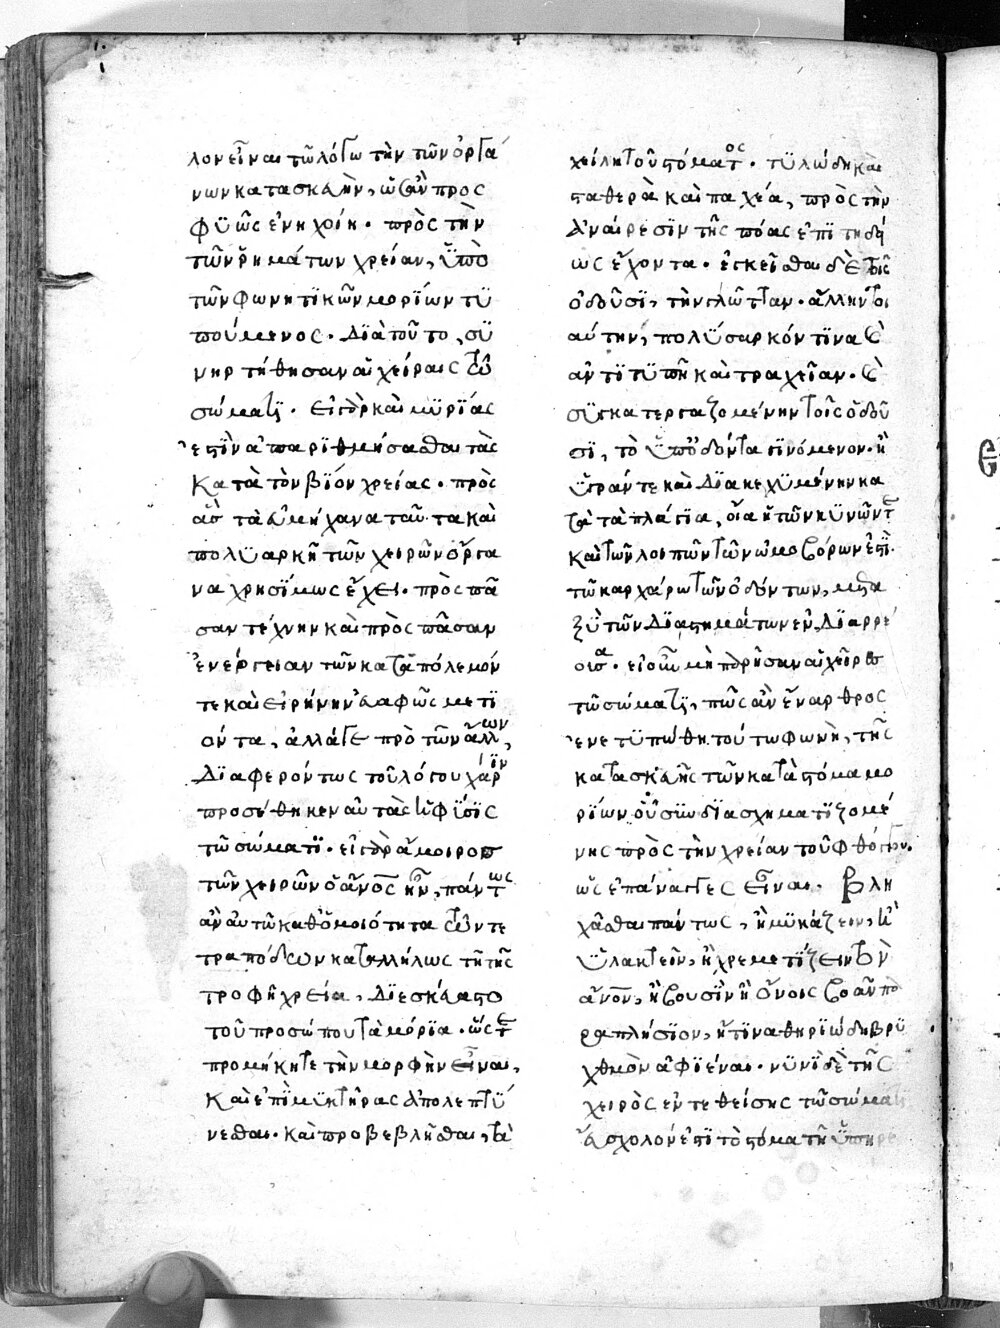 λον εἶναι τῶ λόγω τὴν τῶν ὀργά
νων κατασκευὴν, ὡς ἂν προς
φϋῶς ἐνηχοίη· πρὸς τὴν
τῶν ῥημάτων χρείαν, ὑπὸ
τῶν φωνητϊκῶν μορΐων τϋ
πούμενος· Διὰ τοῦτο, συ
νηρτήθησαν αἱ χεῖραις τῶ
σώματι· Εἰ γὰρ καὶ μϋρΐας
ἐστὶν ἀπαρϊθμήσασθαι τὰς
Κατὰ τὸν βϊόν χρείας· πρὸς
ἃς τὰ εὐμήχανα ταῦτα καὶ
πολϋαρκῆ τῶν χειρῶν ὄργα
να χρησΐμως ἔχει· πρὸς πᾶ
σαν τέχνην καὶ πρὸς πᾶσαν
ἐνέργειαν τῶν κατὰ πόλεμόν
τε καὶ εἰρήνην εὐαφῶς μετϊ
όντα, ἀλλάγε πρὸ τῶν ἄλλων,
Δϊαφερόντως τοῦ λόγου χάριν
προσέθηκεν αὐτὰς ἡ φΰσϊς
τῶ σώματϊ· εἰ γὰρ ἄμοιρος
τῶν χειρῶν ὁ ἄνος ἦν, πάντως
ἂν αὐτῶ καθ ὁμοιότητα τῶν τε
τραπόδων καταλλήλως τῆ τῆς
τροφῆ χρεία, Δϊεσκεύαστο
τοῦ προσώπου τὰ μόρϊα· ὥστε
προμήκητε τὴν μορφὴν εἶναι,
Καὶ ἐπὶ μϋκτῆρας ἀπολεπτΰ
νεσθαι· καὶ προβεβλῆσθαι, τὰ
χείλη τοῦ στόματος· τϋλώδη καὶ
σταθερὰ καὶ παχέα, πρὸς τὴν
Ἀναίρεσϊν τῆς πόας ἐπϊτηδεί
ως ἔχοντα· ἐγκεῖσθαι δὲ τοῖς
ὀδοῦσϊ, τὴν γλῶτταν· ἄλλην τοι
αύτην, πολΰσαρκόν τϊνα καὶ
ἀντϊτϋπῆ καὶ τραχεῖαν· καὶ
σϋγκατεργαζομένην τοῖς ὀδοῦ
σϊ, τὸ ὑπ' ὀδόντα γϊνόμενον· ἢ
ὑγράν τε καὶ Δϊακεχϋμένην κα
τὰ τὰ πλάγϊα, οἵα ἡ τῶν κϋνῶν τε
καὶ τῶν λοιπῶν τῶν ὠμοβόρων ἐστὶ·
τῶ καρχάρω τῶν ὀδόντων, μετα
ξὺ τῶν Δϊαστημάτων ἐν Δϊαρρέ
ουσα· εἰ οὖν μὴ παρῆσαν αἱ χεῖρες
τῶ σώματι, πῶς ἂν ἔναρθρος
ἐνετϋπώθη τούτω φωνὴ, τῆς
κατασκευῆς τῶν κατὰ στόμα μο
ρΐων οὐ σϋνδϊασχηματϊζομέ
νης πρὸς τὴν χρείαν τοῦ φθόγγου·
ὡς ἐπάναγγες εἶναι· ἢ βλη
χᾶσθαι πάντως, ἢ μϋκάζειν, ἢ
ὑλακτεῖν, ἢ χρεμετΐζειν τὸν
ἄνον, ἢ βουσὶν ἢ ὄνοις βοᾶν πα
ραπλήσϊον, ἤ τϊνα θηρϊώδη βρϋ
χθμὸν ἀφϊέναι· νϋνὶ δὲ τῆς
χειρὸς ἐντεθείσης τῶ σώματι
Ἄσχολόν ἐστϊ τὸ στόμα τῆ ὑπηρε